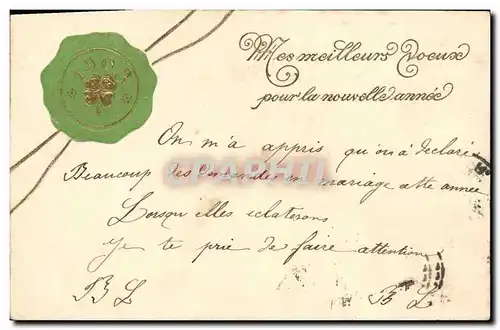 1903
Mes meilleurs Voeux
pour la nouvelle année
On m'a appris qu'on a declaré
Beaucoup des en mariage cette année
Lorsqu'elles eclaterons
je te prie de faire attention
B L B L